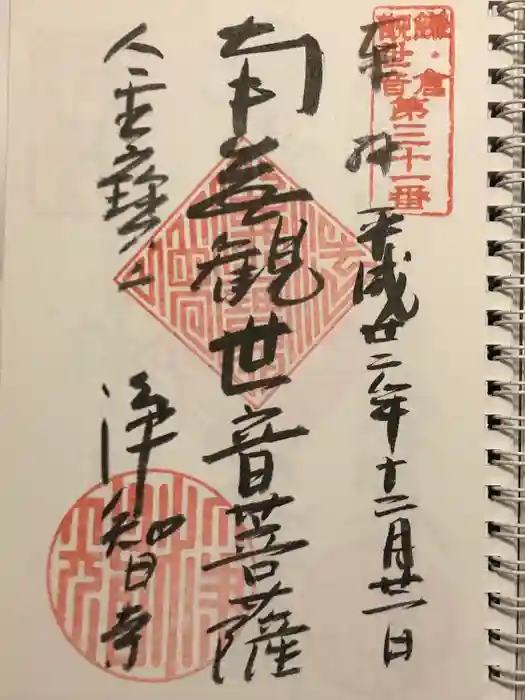 鎌倉
観世音
第三十一番
奉拝 平成廿二年十二月廿一日
南無観世音菩薩
金宝山
浄智寺